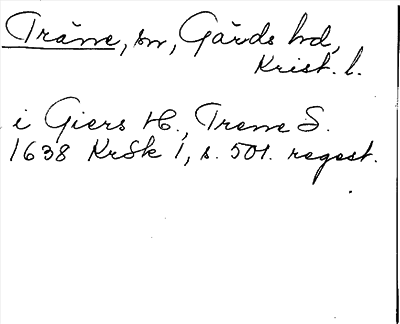 Träne, sn, Gärds hd,
Krist. l.
i Giers H., Trene S.
1638 KrSk 1, s. 501. regest.